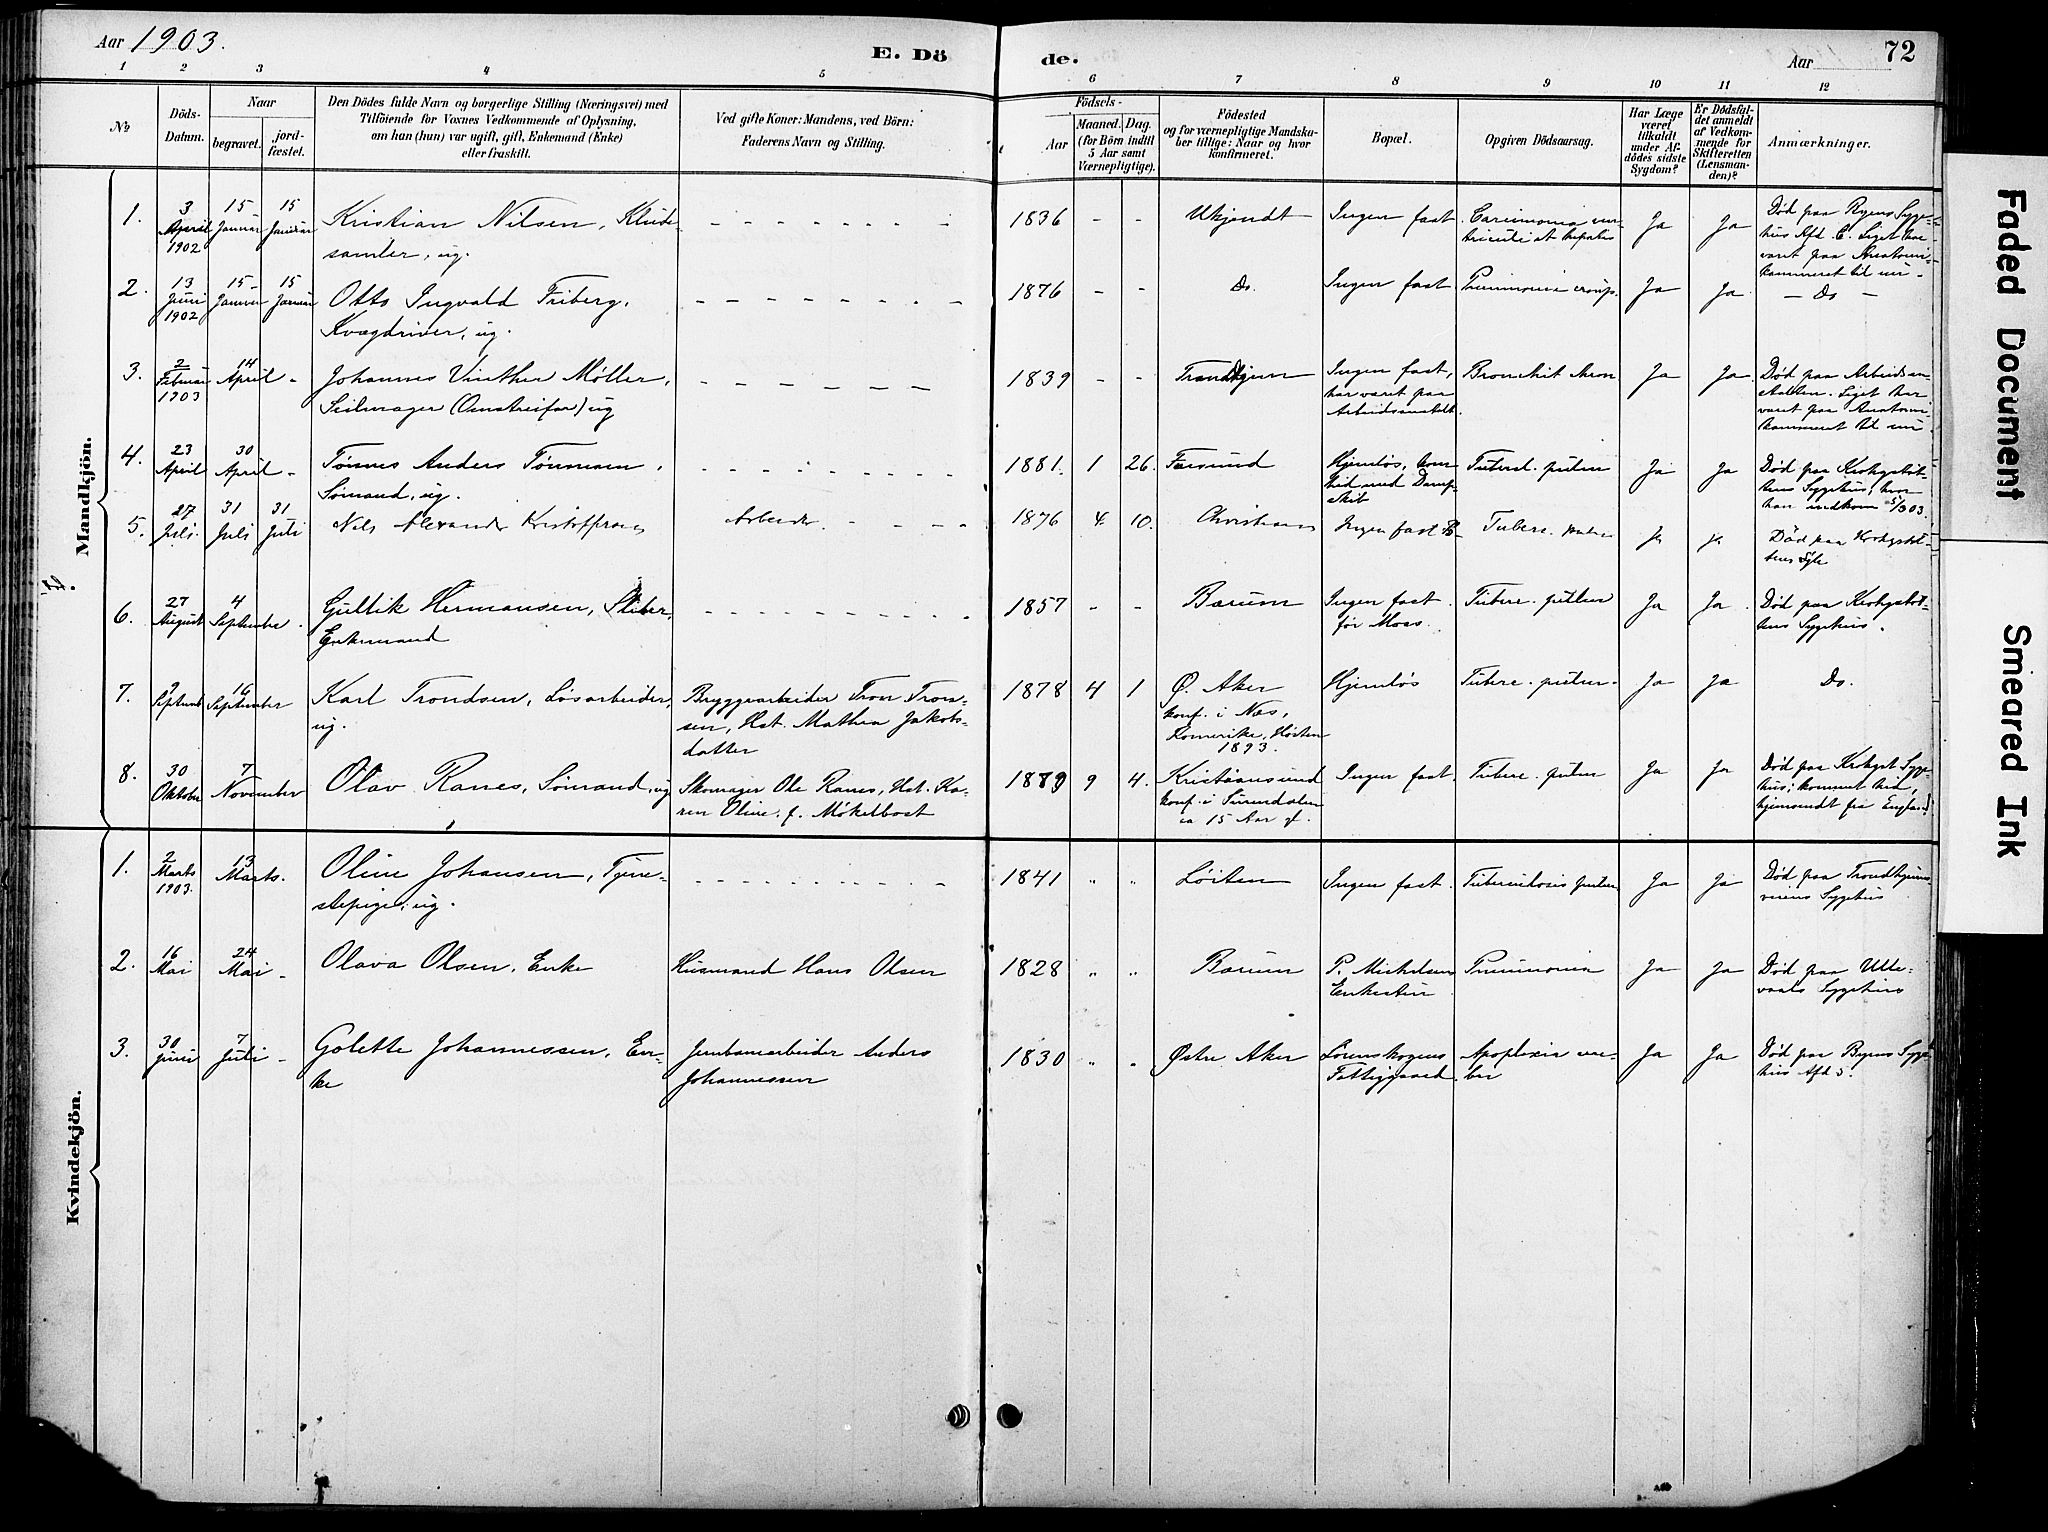 Aar 1903.
E. Dö
de.
Aar
72
1 2 3 4 5 6 7 8 9 10 11 12
№
Döds-
Datum.
Naar
begravet.
jord-
fæstet.
Den Dödes fulde Navn og borgerlige Stilling (Næringsvei) med
Tilföiende for Voxnes Vedkommende af Oplysning,
om han (hun) var ugift, gift, Enkemand (Enke)
eller fraskilt.
Ved gifte Koner: Mandens, ved Börn:
Faderens Navn og Stilling.
Födsels-
Aar
Maaned. Dag.
(for Börn indtil
5 Aar samt
Værnepligtige).
Födested
og for værnepligtige Mandska-
ber tillige: Naar og hvor
konfirmeret.
Bopæl.
Opgiven Dödsaarsag.
Har Læge
været
tilkaldt
under Af-
dödes sidste
Sygdom?
Er Dödsfal-
det anmeldt
af Vedkom-
mende for
Skifteretten
(Lensman-
den)?
Anmærkninger.
Mandkjön.
1. 3 April 1902 15 Januar 15 Januar Kristian Nilsen, Klude-
samler, ug.
1836 - - Ukjendt Ingen fast Ja Ja Død paa Byens Syge-
hus Afd. C. Liget har
været paa Anatomi-
kammeret til nu -
2. 13 Juni 1902 15 Januar 15 Januar Otto Ingvald Friberg,
Kvægdriver, ug.
1876 - - Do. Ingen fast Pneumonia croup. Ja Ja - Do -
3. 2 Februar 1903 14 April - Johannes Vinther Møller,
Seilmager (Omstreifer) ug
1839 - - Trondhjem Ingen fast,
har været paa
Arbeidsanstalt.
Bronchit chron Ja Ja. Død paa Arbeidsan-
stalten. Liget har
været paa Anatomi-
kammeret til nu.
4. 23 April 30 April - Tønnes Anders Tønnesen,
Sømand, ug.
1881. 1 26. Farsund Hjemløs, kom
hid med Damp-
skib
Tubercl. pulm Ja Ja Død paa Krohgstøt-
tens Sygehus, hvor
han indkom 5/3 03.
5. 27 Juli. 31 Juli 31 Juli Nils Alexander Kristoffersen Arbeider
1876 4. 10. Ingen fast B- Tuberc. pulm Ja Ja Død paa Krohgstøt-
tens Syke
6. 27 August 4 September. Gullik Hermansen,
Enkemand
1857 - - Bærum Ingen fast.
før Moss.
Tuberc. pulm Ja Ja. Død paa Krohgstøt-
tens Sygehus.
7. 9 Septemb 16 September Karl Trondsen, Løsarbeider,
ug.
Bryggearbeider Tron Tron-
sen, Hst. Mathea Jakobs-
datter
1878 4 1 Ø. Aker
konf. i Nes,
Romerike, Høsten
1893.
Hjemløs Tuberc. pulm. Ja Ja Do.
8. 30 Oktober 7 November Olav Ranes, Sømand, ug
Skomager Ole Ranes, Hst. Ka-
ren Oline f. Møkelbost
1879 9 4. Kristiansund
konf. i Surendalen
ca 15 Aar gl.
Ingen fast. Tuberc. pulm Ja Ja Død paa Krohgst. Syge-
hus; kommet hid,
hjemsendt fra England.
Kvindekjön.
1. 2 Marts 1903. 13 Marts. Oline Johansen, Tjene-
stepige, ug.
1841 " " Løiten Ingen fast. Tuberculosis pulm Ja Ja Død paa Trondhjems-
veiens Sygehus
2. 16 Mai 24 Mai - Olava Olsen, Enke Husmand Hans Olsen
1828 " " Bærum P. Michelsen
Enkestin
Pneumonia Ja Ja Død paa Ulle-
vaals Sygehus
3. 30 Juni 7 Juli - Golette Johannessen, En-
ke
Jernbanearbeider Anders
Johannessen
1830 " " Østre Aker Lørenskogens
Fattiggaard.
Apoplexia cere-
bri
Ja Ja Død paa Byens Syge-
hus Afd 5.
Faded Document
Smeared Ink